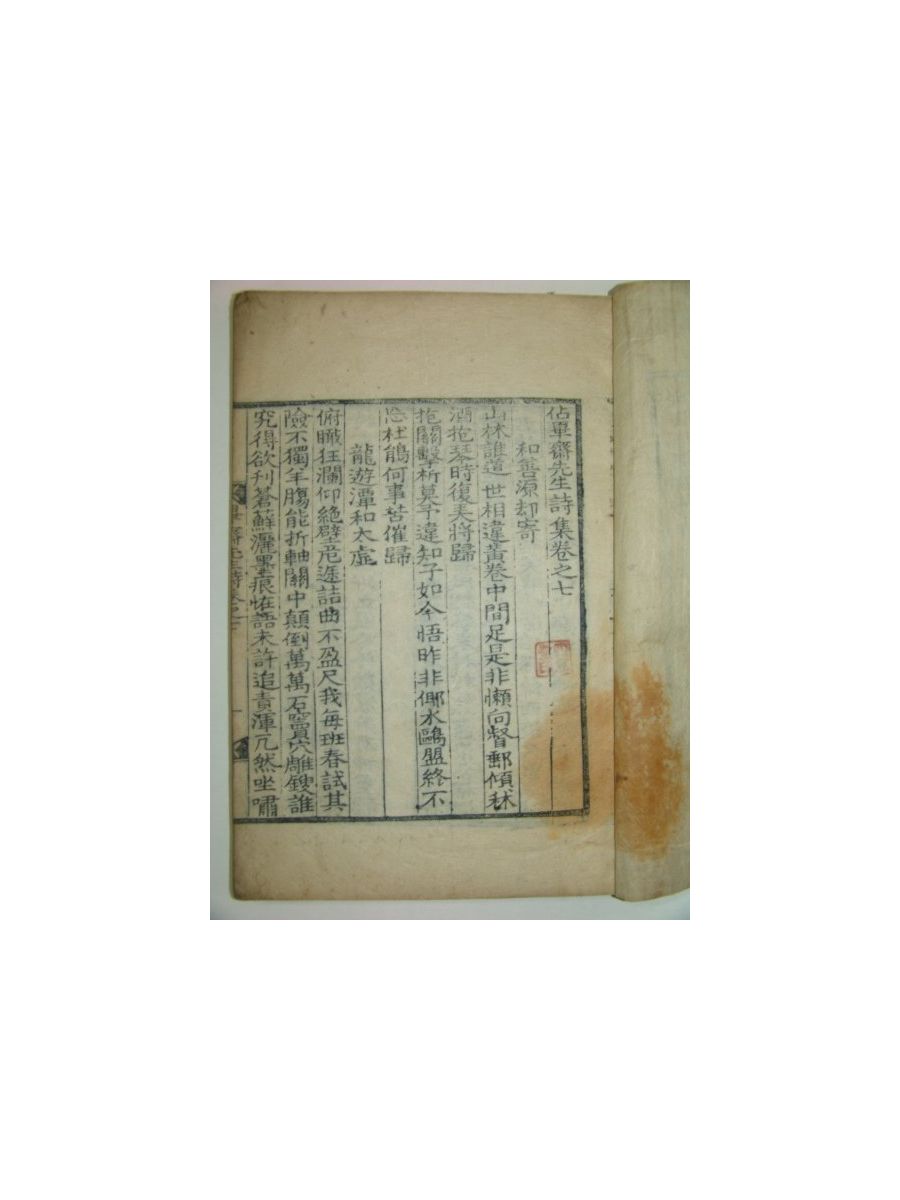 佔畢齋先生詩集卷之七
和善源却寄
山林誰道世相違黃卷中間足是非懶向督郵傾秫
酒抱琴時復美將歸
抱關擊柝莫予違知子如今悟昨非㑚水鷗盟終不
忘杜鵑何事苦催歸
龍遊潭和太虛
俯瞰狂瀾仰絶壁危途詰曲不盈尺我每班春試其
險不獨羊膓能折軸關中顛倒萬萬石竇穴雕鎪誰
究得欲刋蒼蘚灑墨痕恠語未許追責渾兀然坐嘯